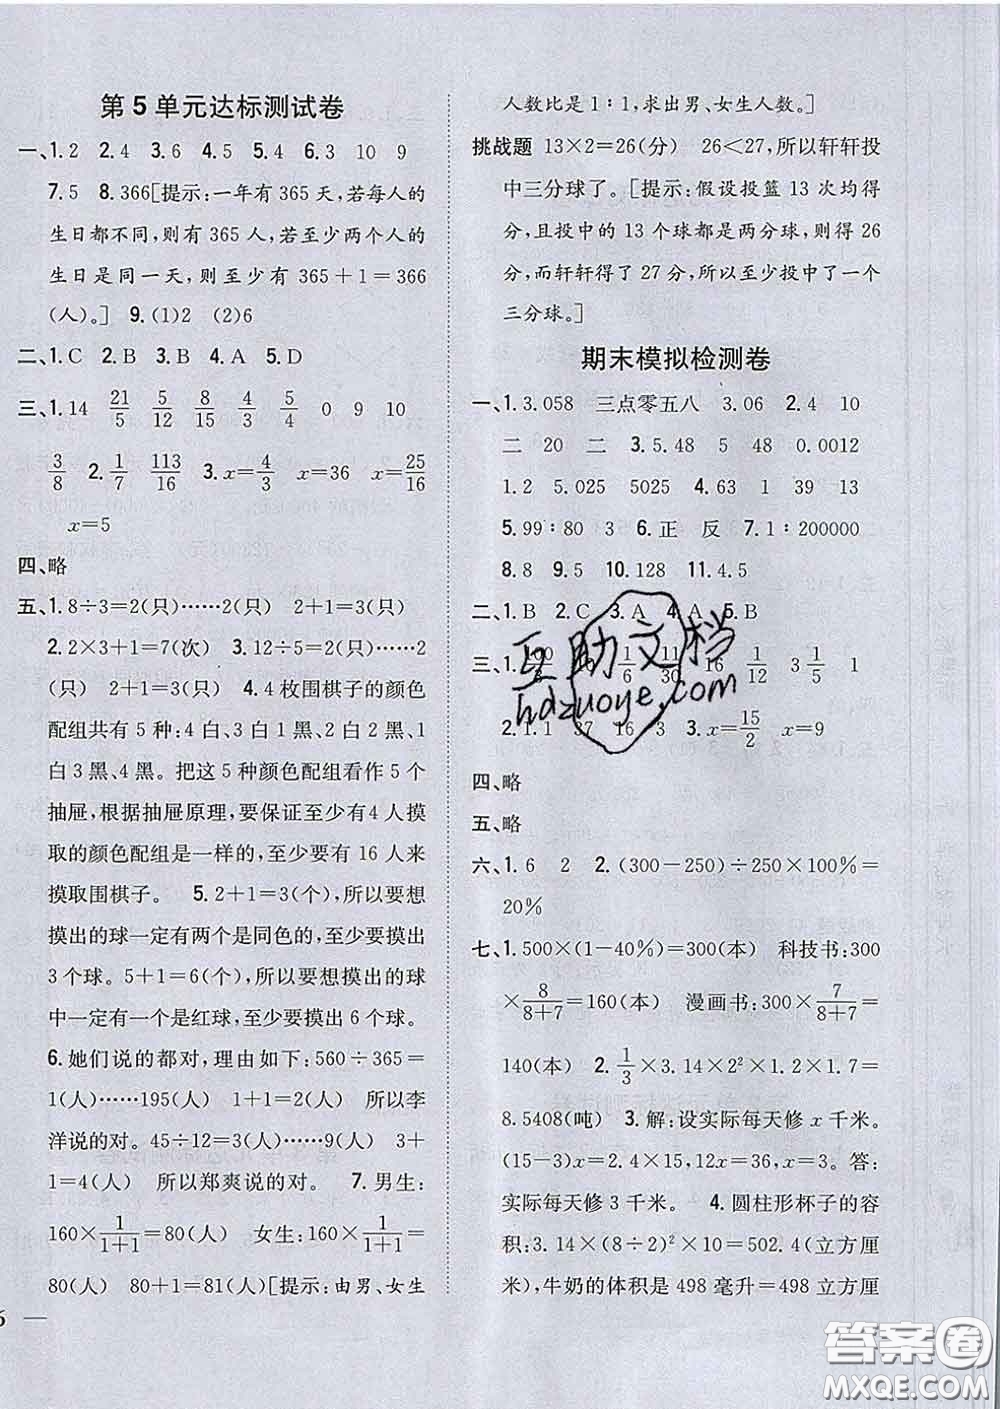 第5单元达标测试卷
一、1.2 2.4 3.6 4.5 5.4 6.3 10 9
7.5 8.366[提示:一年有365天,若每人的
生日都不同,则有365人,若至少两个人的
生日是同一天,则至少有365+1=366
(人)。] 9.(1)2 (2)6
二、1.C 2.B 3.B 4.A 5.D
三、1.14 21/5 5/12 8/15 4/3 5/4 0 9 10
3/8 2.1/7 113/16 3.x=4/3 x=36 x=25/16
x=5
四、略
五、1.8÷3=2(只)……2(只) 2+1=3(只)
2.2×3+1=7(次) 3.12÷5=2(只)……2
(只) 2+1=3(只) 4.4枚围棋子的颜色
配组共有5种:4白、3白1黑、2白2黑、1
白3黑、4黑。把这5种颜色配组看作5个
抽屉,根据抽屉原理,要保证至少有4人摸
取的颜色配组是一样的,至少要有16人来
摸取围棋子。 5.2+1=3(个),所以要想
摸出的球一定有两个是同色的,至少要摸出
3个球。5+1=6(个),所以要想摸出的球
中一定有一个是红球,至少要摸出6个球。
6.她们说的都对,理由如下:560÷365=
1(人)……195(人) 1+1=2(人) 所以李
洋说的对。45÷12=3(人)……9(人) 3+
1=4(人) 所以郑爽说的对。 7.男生:
160×1/(1+1)=80(人) 女生:160×1/(1+1)=
80(人) 80+1=81(人)[提示:由男、女生
6 —
人数比是1∶1,求出男、女生人数。]
挑战题 13×2=26(分) 26<27,所以轩轩投
中三分球了。[提示:假设投篮13次均得
分,且投中的13个球都是两分球,则得26
分,而轩轩得了27分,所以至少投中了一个
三分球。]
期末模拟检测卷
一、1.3.058 三点零五八 3.06 2.4 10
二 20 二 3.5.48 5 48 0.0012
1.2 5.025 5025 4.63 1 39 13
5.99∶80 3 6.正 反 7.1∶200000
8.8 9.5 10.128 11.4.5
二、1.B 2.C 3.A 4.A 5.B
三、1. 1/6 11/30 16 1/12 3 1/5 1
2.1.1 37 16 3 3.x=15/2 x=9
四、略
五、略
六、1.6 2 2.(300-250)÷250×100%=
20%
七、1.500×(1-40%)=300(本) 科技书:300
×8/(8+7)=160(本) 漫画书:300×7/(8+7)=
140(本) 2.1/3×3.14×2²×1.2×1.7=
8.5408(吨) 3.解:设实际每天修x千米。
(15-3)x=2.4×15,12x=36,x=3。答:
实际每天修3千米。 4.圆柱形杯子的容
积:3.14×(8÷2)²×10=502.4(立方厘
米),牛奶的体积是498毫升=498立方厘
互助文档
hdzuoye.com
答案圈
MXQE.COM